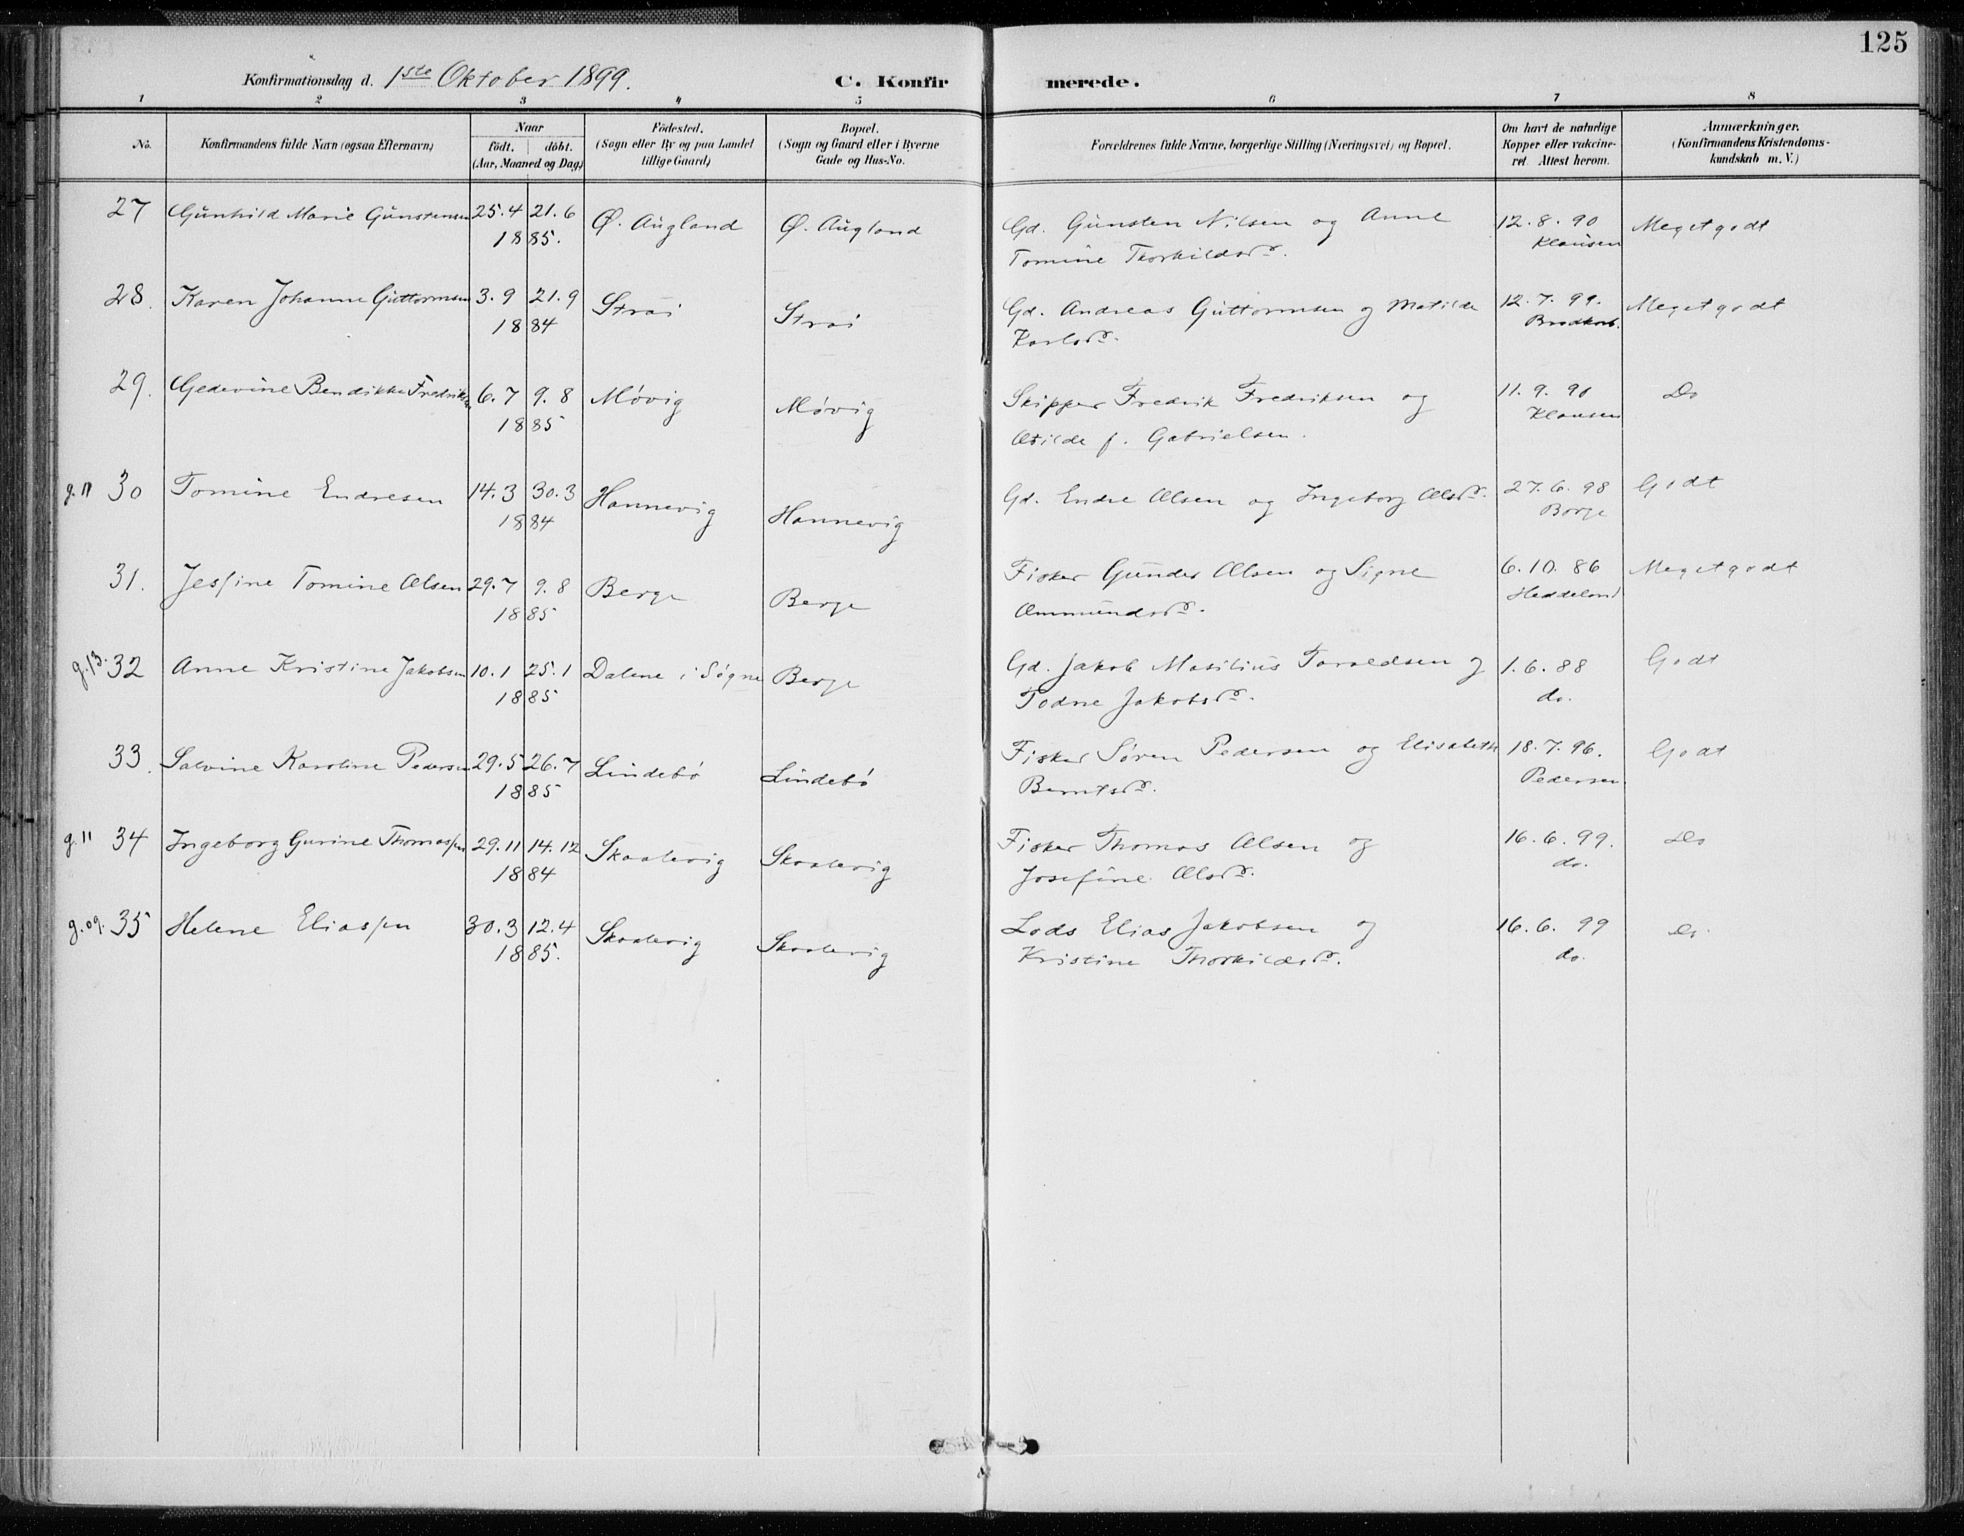 125
Konfirmationsdag d. 1ste Oktober 1899.
C. Konfirmerede.
1 2 3 4 5 6 7 8
No.
Konfirmandens fulde Navn (ogsaa Efternavn)
Naar
født. døbt.
(Aar, Maaned og Dag)
Fødested.
(Sogn eller By og paa Landet
tillige Gaard)
Bopæl.
(Sogn og Gaard eller i Byerne
Gade og Hus-No.
Forældrenes fulde Navne, borgerlige Stilling (Næringsvei) og Bopæl.
Om havt de naturlige
Kopper eller vakcine-
ret Attest herom.
Anmærkninger.
(Konfirmandens Kristendoms-
kundskab m. V.)
27 Gunhild Marie Gunstensen 25.4 21.6 Ø. Augland Ø. Augland Gd. Gunsten Nilsen og Anne 12.8.90 Meget godt
1885. Tomine Thorkildsd. Klausen
28. Karen Johanne Guttormsen 3.9 21.9 Strai Strai Gd. Andreas Guttormsen og Matilde 12.7.99. Meget godt
1884 Karlsd. Brodkorb.
29. Gedevine Bendikke Fredriksen 6.7 9.8 Møvig Møvig Skipper Fredrik Fredriksen og 11.9.90 Do
1885 Otilde f. Gabrielsen. Klausen
g.11 30 Tomine Endresen 14.3 30.3 Hannevig Hannevig Gd. Endre Olsen og Ingeborg Olsd. 27.6.98 Godt
1884 Borge
31. Jesfine Tomine Olsen 29.7 9.8 Berge Berge Fisker Gunder Olsen og Signe 6.10.86 Meget godt
1885 Ommundsd. Heddeland
g.13. 32 Anne Kristine Jakobsen 10.1 25.1 Dalene i Søgne Berge Gd. Jakob Masilius Taraldsen og 1.6.88 Godt
1885 Todne Jakobsd. do.
33. Salvine Karoline Pedersen 29.5 26.7 Lindebø Lindebø Fisker Søren Pedersen og Elisabeth 18.7.96. Godt
1885 Berntsd. Pedersen
g.11 34 Ingeborg Gurine Thomassen 29.11 14.12 Skaalevig Skaalevig Fisker Thomas Olsen og 16.6.99. Do
1884 Josefine Olsd. do.
g.09. 35 Helene Eliassen 30.3 12.4 Skaalevig Skaalevig Lods Elias Jakobsen og 16.6.99 Do
1885. Kristine Thorkildsd. do.